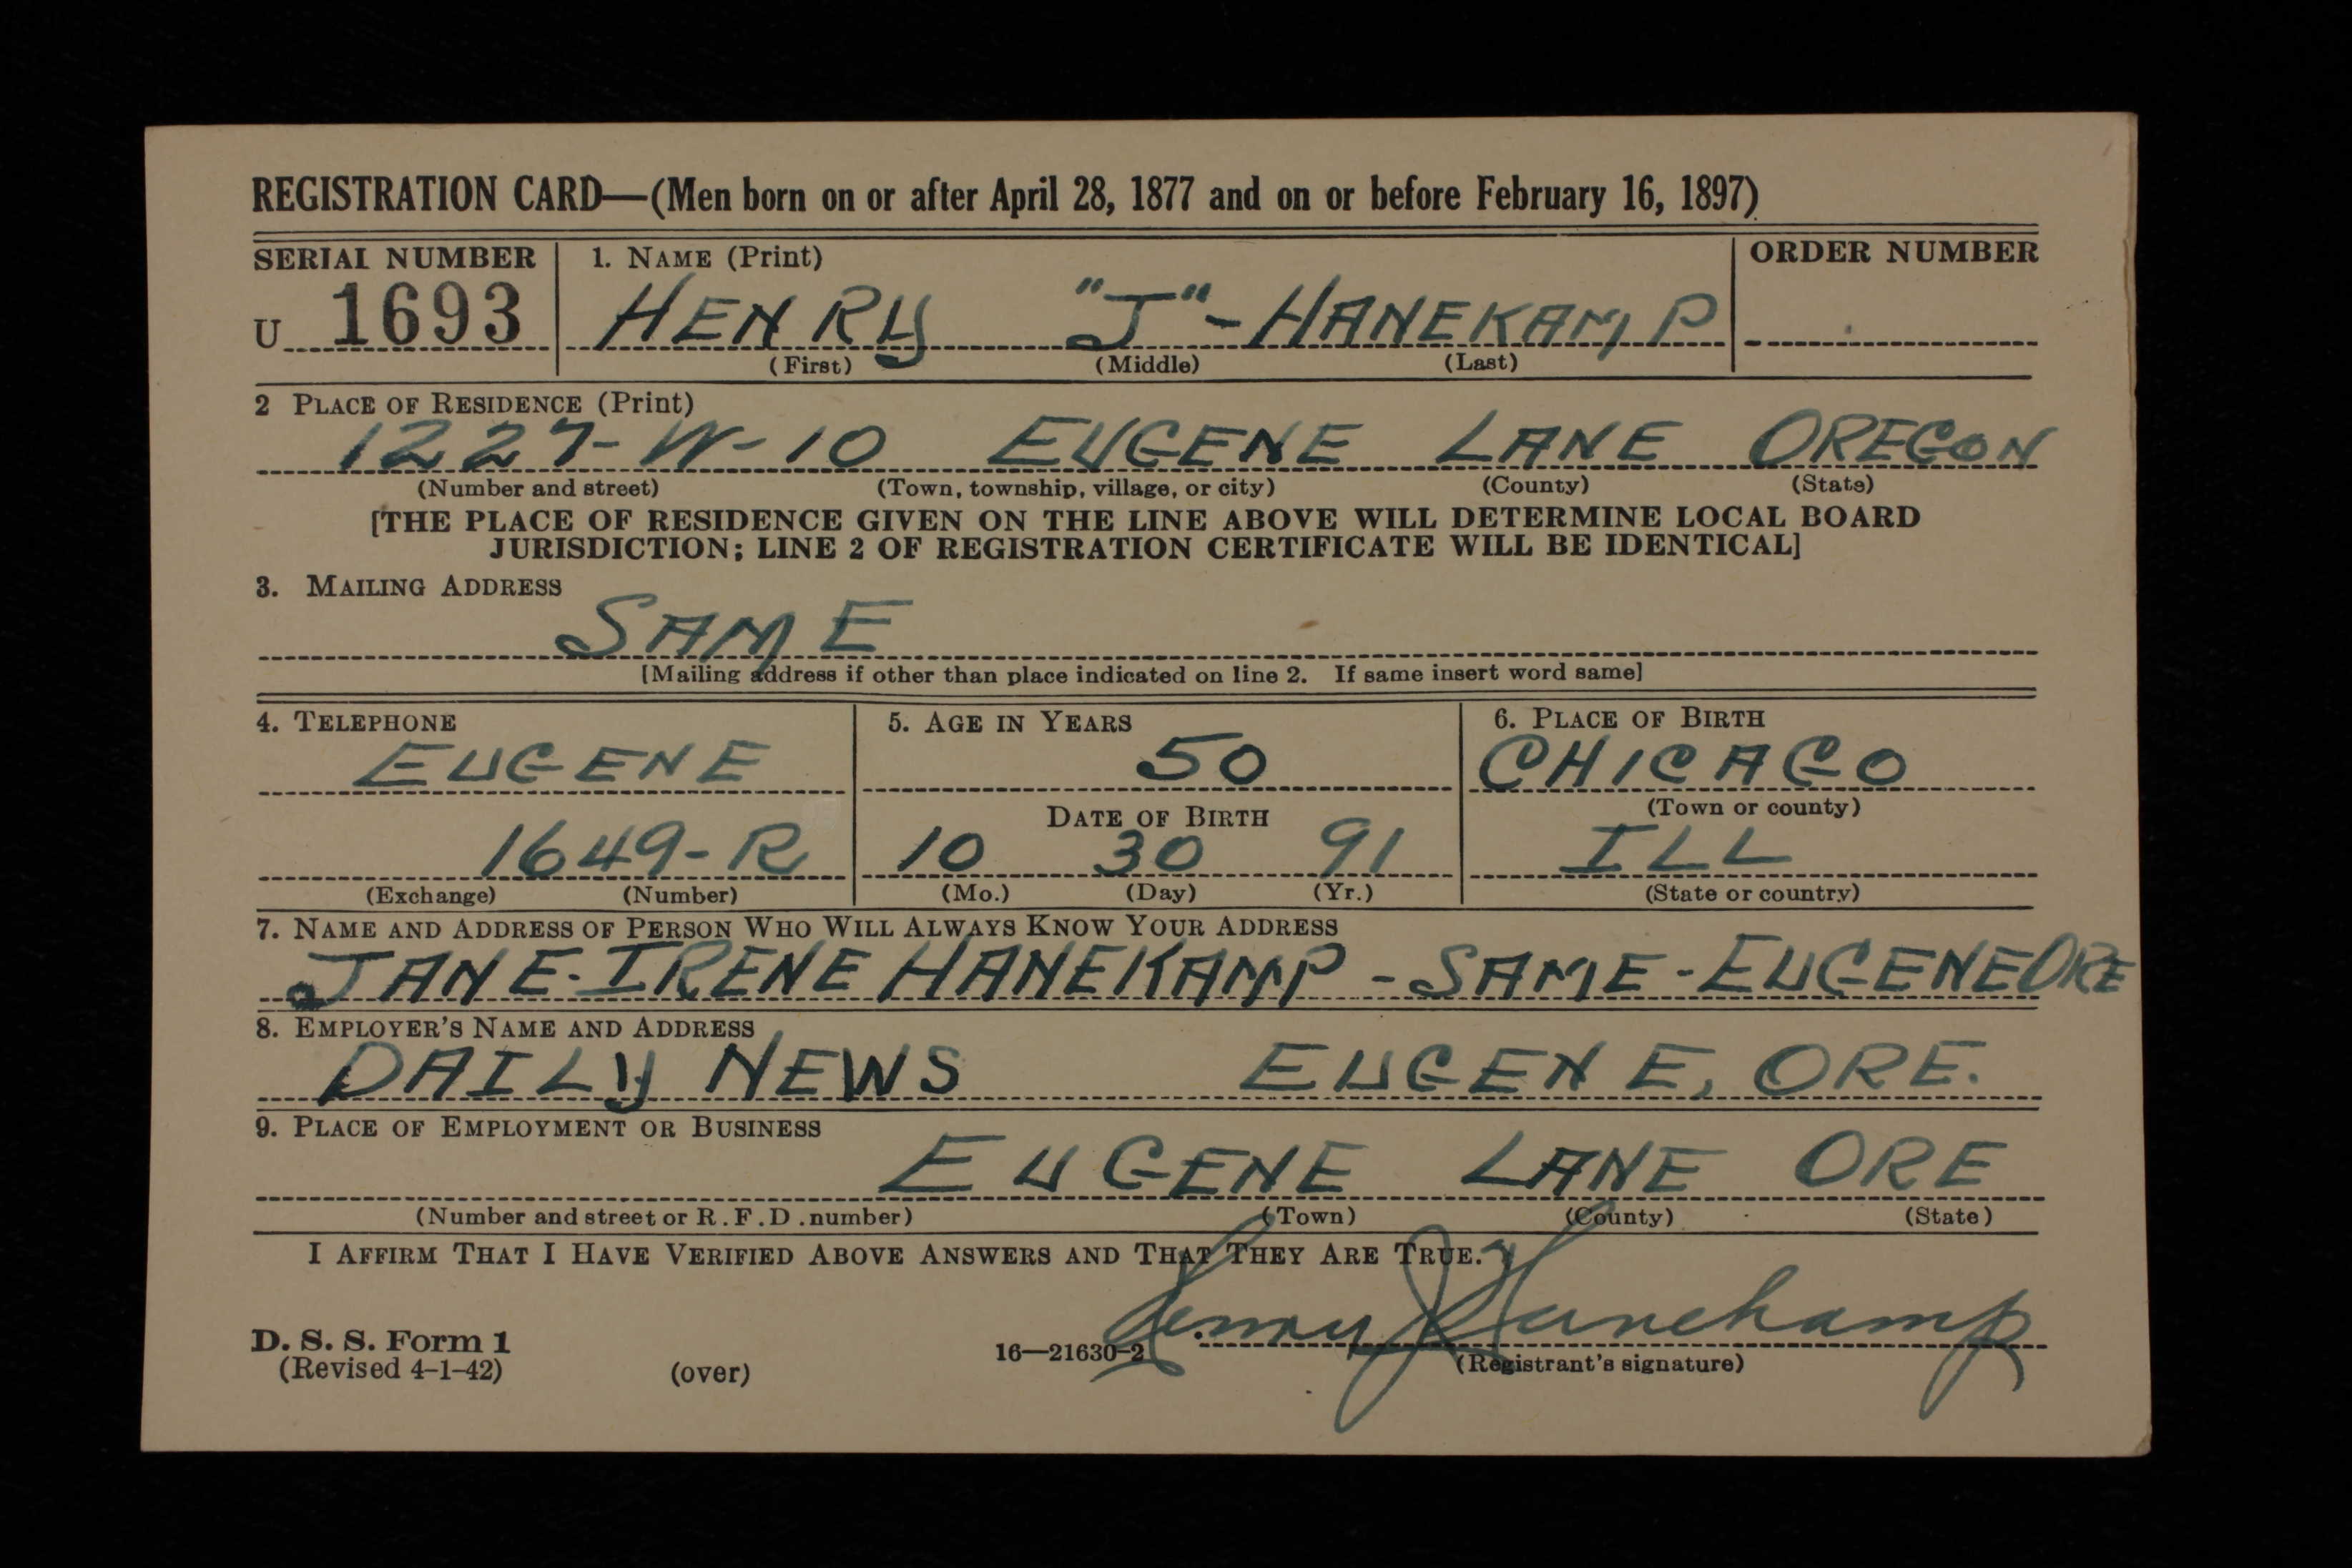 REGISTRATION CARD—(Men born on or after April 28, 1877 and on or before February 16, 1897)
SERIAL NUMBER
1. NAME (Print)
ORDER NUMBER
U 1693
HENRY "J"- HANEKAMP
(First) (Middle) (Last)
2 PLACE OF RESIDENCE (Print)
1227-W-10 EUGENE LANE OREGON
(Number and street) (Town, township, village, or city) (County) (State)
[THE PLACE OF RESIDENCE GIVEN ON THE LINE ABOVE WILL DETERMINE LOCAL BOARD
JURISDICTION; LINE 2 OF REGISTRATION CERTIFICATE WILL BE IDENTICAL]
3. MAILING ADDRESS
SAME
[Mailing address if other than place indicated on line 2. If same insert word same]
4. TELEPHONE
EUGENE
1649-R
(Exchange) (Number)
5. AGE IN YEARS
50
DATE OF BIRTH
10 30 91
(Mo.) (Day) (Yr.)
6. PLACE OF BIRTH
CHICAGO
(Town or county)
ILL
(State or country)
7. NAME AND ADDRESS OF PERSON WHO WILL ALWAYS KNOW YOUR ADDRESS
JANE-IRENE HANEKAMP - SAME - EUGENE ORE
8. EMPLOYER'S NAME AND ADDRESS
DAILY NEWS EUGENE, ORE.
9. PLACE OF EMPLOYMENT OR BUSINESS
EUGENE LANE ORE
(Number and street or R.F.D. number) (Town) (County) (State)
I AFFIRM THAT I HAVE VERIFIED ABOVE ANSWERS AND THAT THEY ARE TRUE.
Henry J Hanekamp
D. S. S. Form 1
(Revised 4-1-42) (over) 16—21630-2 (Registrant's signature)